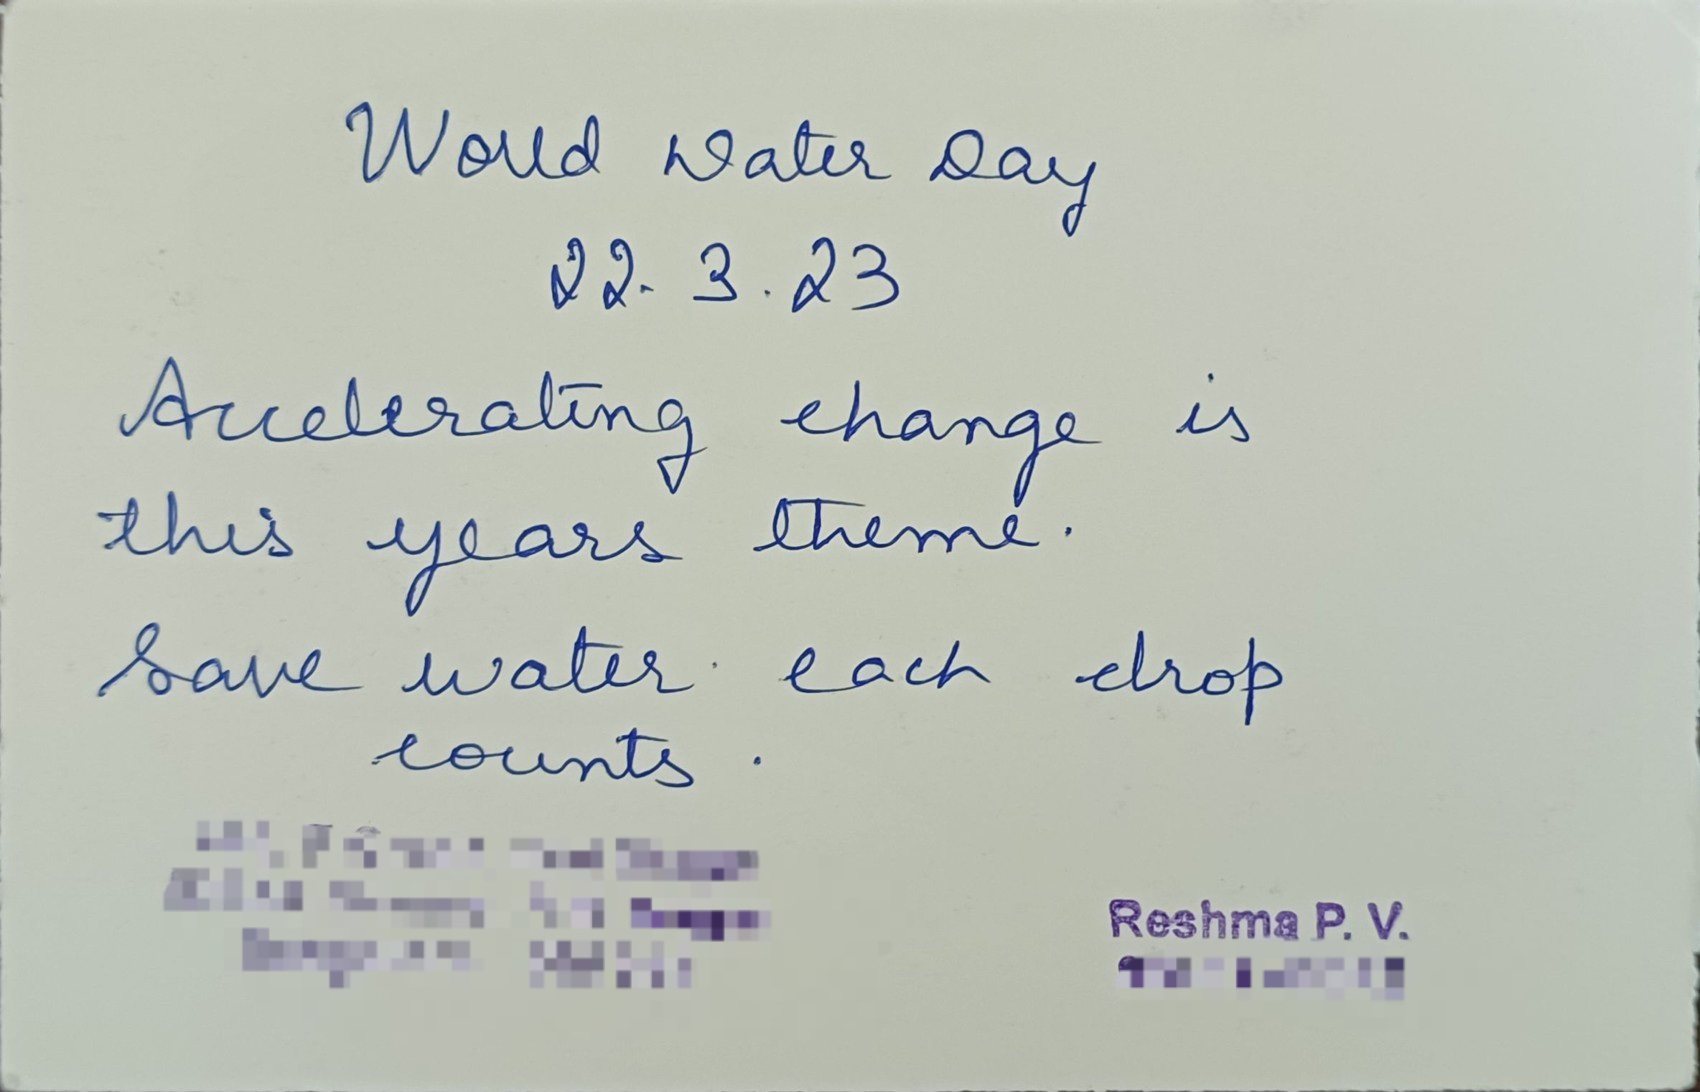 World Water Day
22.3.23
Accelerating change is
this years theme.
Save water each drop
counts.
Reshma P. V.